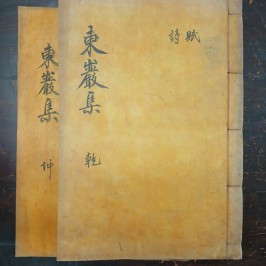 東巖集
乾
賦
詩
東巖集
坤